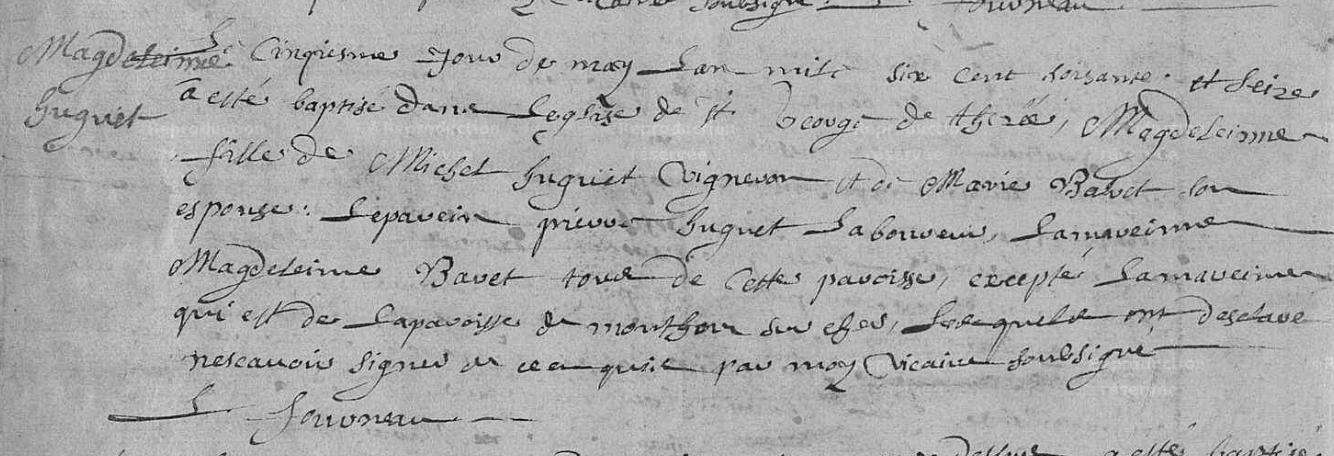 vicaire soubsigné Fourneau
Magdeleinne Le Cinqiesme Jour de may Lan mile six cent soisante et seize
huguet a esté baptisé dans Leglise de st George de theréé, Magdeleinne
fille de Michel huguet Vigneron et de Marie Bavet son
espouse: Le parein pierre huguet Laboureur, La mareinne
Magdeleinne Bavet tous de Cette paroisse, excepté La mareinne
qui est de La paroisse de monthou sur cher, Lesquels ont desclaré
ne scavoir signer de ce enquis par moy Vicaire soubsigné
L Fourneau
a esté baptisé